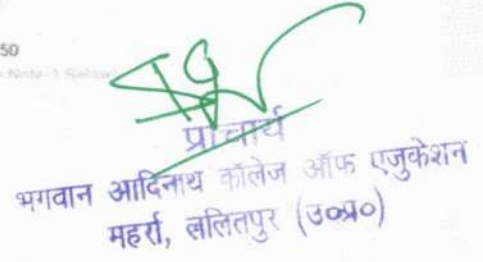 50
प्राचार्य
भगवान आदिनाथ कॉलेज ऑफ एजुकेशन
महर्रा, ललितपुर (उ०प्र०)